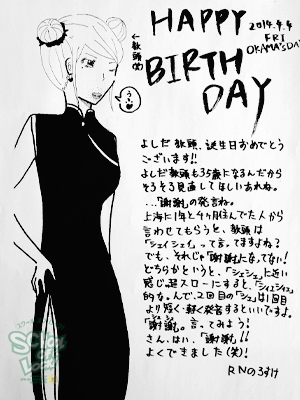 HAPPY
BIRTH
DAY
2014.4.4
FRI
OKAMA'S DAY
←教頭(笑)
うふ♡
よしだ教頭、誕生日おめでとう
ございます!!
よしだ教頭も35歳になるんだから
そろそろ見直してほしいあれね。
…「謝謝」の発言ね。
上海に1年と4ヶ月住んでた人から
言わせてもらうと、教頭は
「シェイシェイ」って言てますよね?
でも、それじゃ「謝謝」になってない!
どちらかというと、「シェシェ」に近い
感じ。超スローにすると、「シィェシィェ」
的な。んで、2回目の「シェ」は1回目
より短く・軽く発音するといいですよ。
「謝謝」。言ってみよう!
さん、はい、「謝謝」!!
よくできました(笑)
RNのろすけ
SCHOOL OF LOCK!